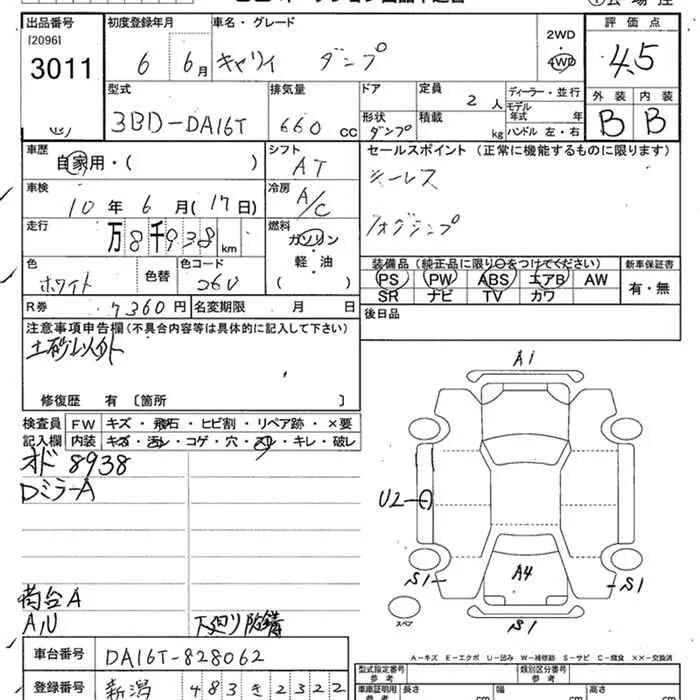 出品番号 初度登録年月 車名・グレード 評価点
[2096]
3011 6 6月 キャリイ ダンプ 2WD・4WD 4.5
型式 排気量 ドア 定員 2人 ディーラー・並行 外装 内装
3BD-DA16T 660 CC 形状 ダンプ 積載 kg モデル年式 年 ハンドル 左・右 B B
車歴 自家用・( ) シフト AT セールスポイント (正常に機能するものに限ります)
車検 10年6月(17日) 冷房 A/C シーレス
走行 万8千938km 燃料 ガソリン 軽・油 ( ) フォグランプ
色 ホワイト 色替 色コード 26U 装備品(純正品に限り○をつけてください) 新車保証書
PS PW ABS エアB AW 有・無
SR ナビ TV カワ
R券 7360円 名変期限 月 日 後日品
注意事項申告欄(不具合内容等は具体的に記入して下さい)
土砂以外
修復歴 有 [箇所 ]
検査員 FW キズ・飛石・ヒビ割・リペア跡・×要
記入欄 内装 キズ・汚レ・コゲ・穴・スリ・キレ・破レ
オド 8938
DミラーA
荷台A
A,U 下廻り防錆
A1
U2
A4
S1 S1
S1
スペア
A-キズ E-エクボ U-凹み W-補修跡 S-サビ C-腐食 ××-交換済
車台番号 DA16T-828062 型式指定番号 参考 類別区分番号 参考
登録番号 新潟 483き2322 車庫証明用 参考 長さ cm 幅 cm 高さ cm